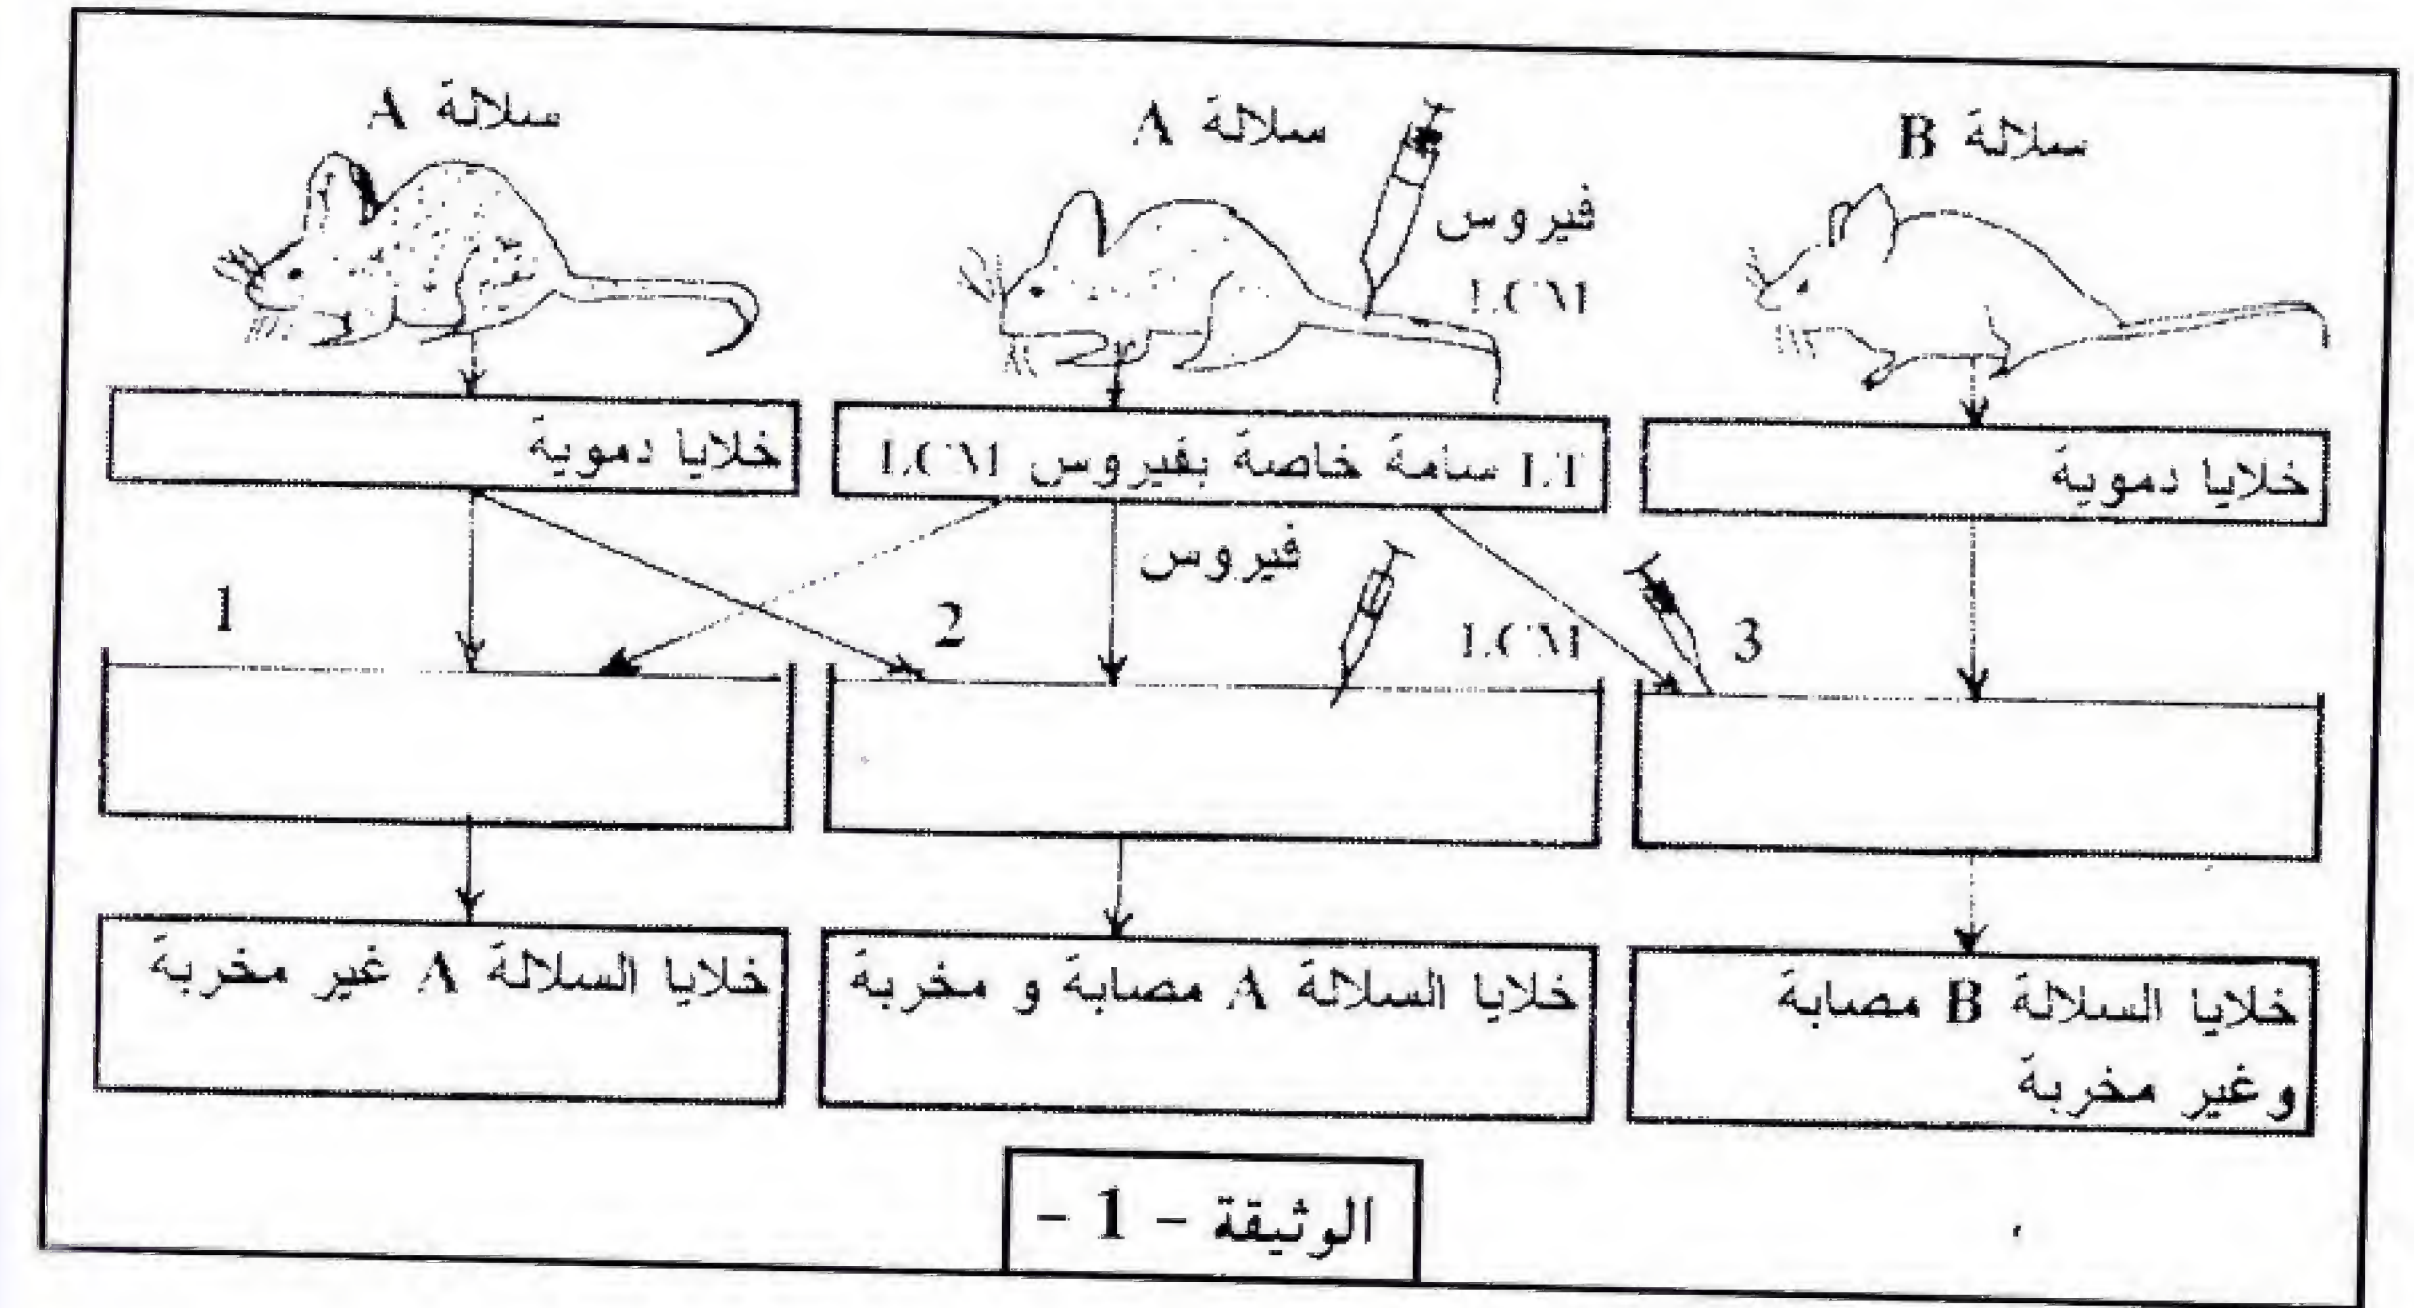 سلالة A
سلالة A
سلالة B
فيروس
LCM
خلايا دموية
LT سامة خاصة بفيروس LCM
خلايا دموية
فيروس
LCM
1
2
3
خلايا السلالة A غير مخربة
خلايا السلالة A مصابة و مخربة
خلايا السلالة B مصابة
وغير مخربة
الوثيقة - 1 -